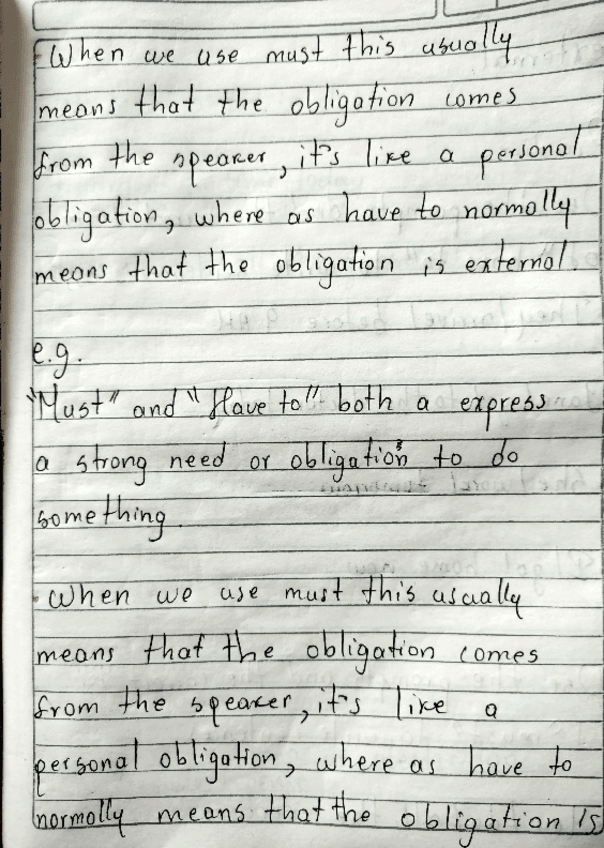 When we use must this usually
means that the obligation comes
from the speaker, it's like a personal
obligation, where as have to normally
means that the obligation is external.
e.g.
"Must" and "Have to" both a express
a strong need or obligation to do
something.
When we use must this usually
means that the obligation comes
from the speaker, it's like a
personal obligation, where as have to
normally means that the obligation is